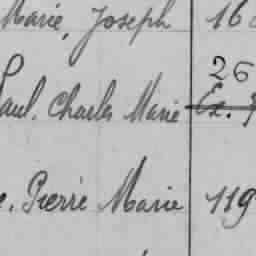 Marie, Joseph 16
26
Paul. Charles Marie Ex.
Pierre Marie 119